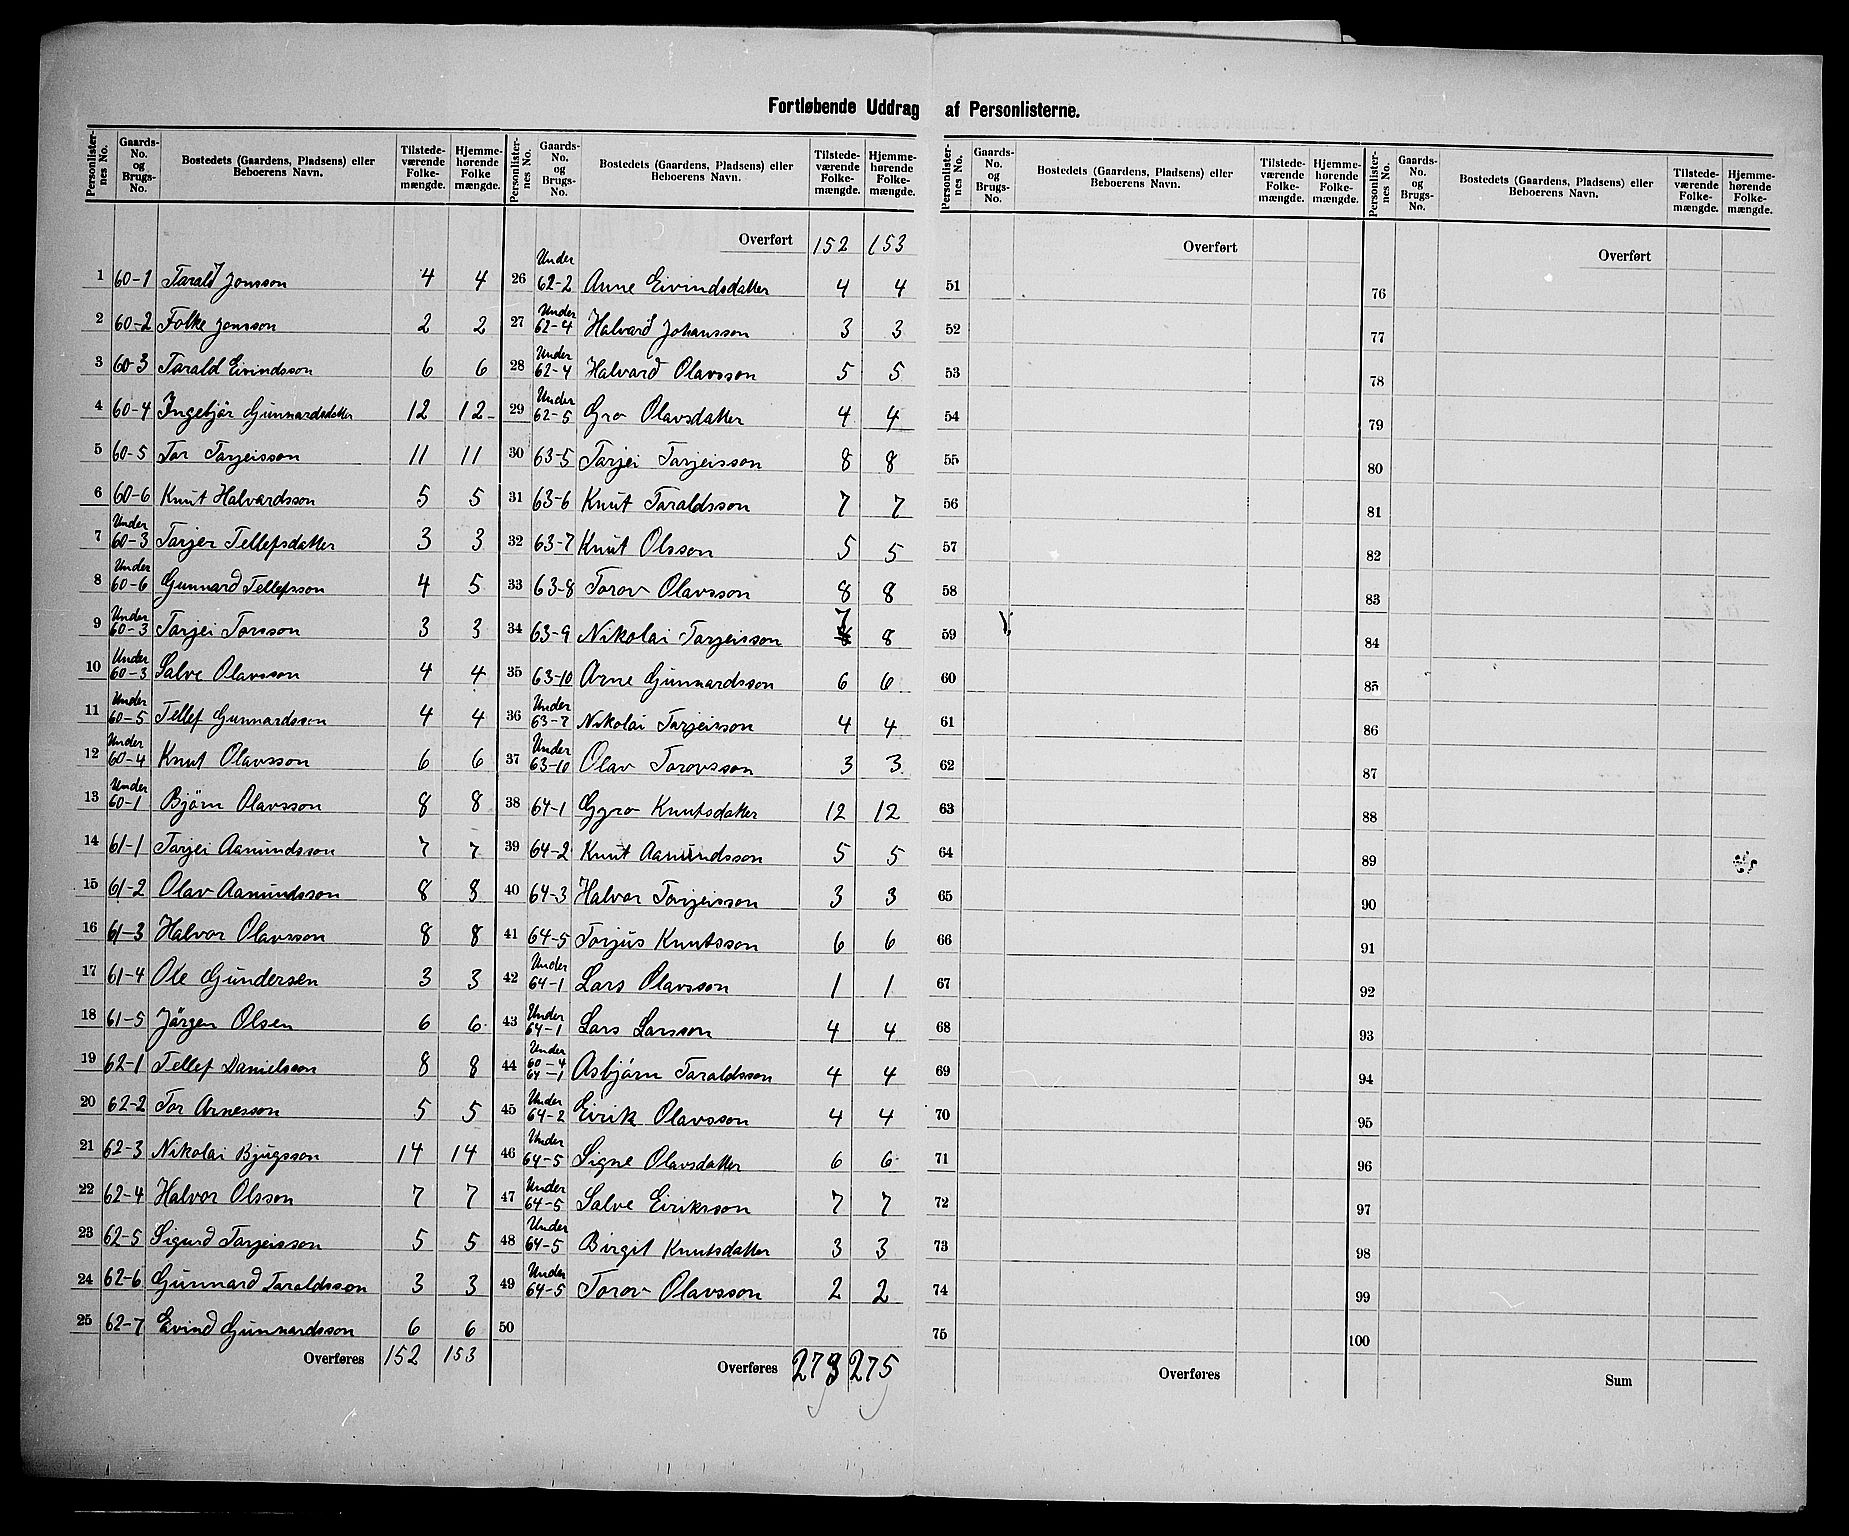 Fortløbende Uddrag af Personlisterne.
Personlister-nes No. | Gaards-No. og Brugs-No. | Bostedets (Gaardens, Pladsens) eller Beboerens Navn. | Tilstede-værende Folke-mængde. | Hjemme-hørende Folke mængde.
1 60-1 Tarald Jonsson 4 4
2 60-2 Folke Jonsson 2 2
3 60-3 Tarald Eivindsson 6 6
4 60-4 Ingebjör Gunnardsdatter 12 12
5 60-5 Tor Tarjeisson 11 11
6 60-6 Knut Halvardsson 5 5
7 Under 60-3 Tarjer Tellefsdatter 3 3
8 Under 60-6 Gunnard Tellefsson 4 5
9 Under 60-3 Tarjei Torsson 3 3
10 Under 60-3 Salve Olavsson 4 4
11 Under 60-5 Tellef Gunnardsson 4 4
12 Under 60-4 Knut Olavsson 6 6
13 Under 60-1 Björn Olavsson 8 8
14 61-1 Tarjei Aamundsson 7 7
15 61-2 Olav Aamundsson 8 8
16 61-3 Halvor Olavsson 8 8
17 61-4 Ole Gundersen 3 3
18 61-5 Jörgen Olsen 6 6
19 62-1 Tellef Danielsson 8 8
20 62-2 Tor Arnesson 5 5
21 62-3 Nikolai Bjugsson 14 14
22 62-4 Halvor Olsson 7 7
23 62-5 Sigurd Tarjeisson 5 5
24 62-6 Gunnard Taraldsson 3 3
25 62-7 Eivind Gunnardsson 6 6
Overføres 152 153
Personlister-nes No. | Gaards-No. og Brugs-No. | Bostedets (Gaardens, Pladsens) eller Beboerens Navn. | Tilstede-værende Folke-mængde. | Hjemme-hørende Folke-mængde.
Overført 152 153
26 Under 62-2 Anne Eivindsdatter 4 4
27 Under 62-4 Halvard Johansson 3 3
28 Under 62-4 Halvard Olavsson 5 5
29 Under 62-5 Gro Olavsdatter 4 4
30 63-5 Tarjei Tarjeisson 8 8
31 63-6 Knut Taraldsson 7 7
32 63-7 Knut Olsson 5 5
33 63-8 Torov Olavsson 8 8
34 63-9 Nikolai Tarjeisson 7 8
35 63-10 Arne Gunnardsson 6 6
36 Under 63-7 Nikolai Tarjeisson 4 4
37 Under 63-10 Olav Torovsson 3 3
38 64-1 Gyro Knutsdatter 12 12
39 64-2 Knut Aamundsson 5 5
40 64-3 Halvor Tarjeisson 3 3
41 64-5 Torjus Knutsson 6 6
42 Under 64-1 Lars Olavsson 1 1
43 Under 64-1 Lars Larsson 4 4
44 Under 60-4 64-1 Asbjörn Taraldsson 4 4
45 Under 64-2 Eirik Olavsson 4 4
46 Under 64-5 Signe Olavsdatter 6 6
47 Under 64-5 Salve Eiriksson 7 7
48 Under 64-5 Birgit Knutsdatter 3 3
49 Under 64-5 Torov Olavsson 2 2
50
Overføres 273 275
Personlister-nes No. | Gaards-No. og Brugs-No. | Bostedets (Gaardens, Pladsens) eller Beboerens Navn. | Tilstede-værende Folke-mængde. | Hjemme-hørende Folke-mængde.
Overført
51
52
53
54
55
56
57
58
59
60
61
62
63
64
65
66
67
68
69
70
71
72
73
74
75
Overføres
Personlister-nes No. | Gaards-No. og Brugs-No. | Bostedets (Gaardens, Pladsens) eller Beboerens Navn. | Tilstede-værende Folke-mængde. | Hjemme-hørende Folke-mængde.
Overført
76
77
78
79
80
81
82
83
84
85
86
87
88
89
90
91
92
93
94
95
96
97
98
99
100
Sum